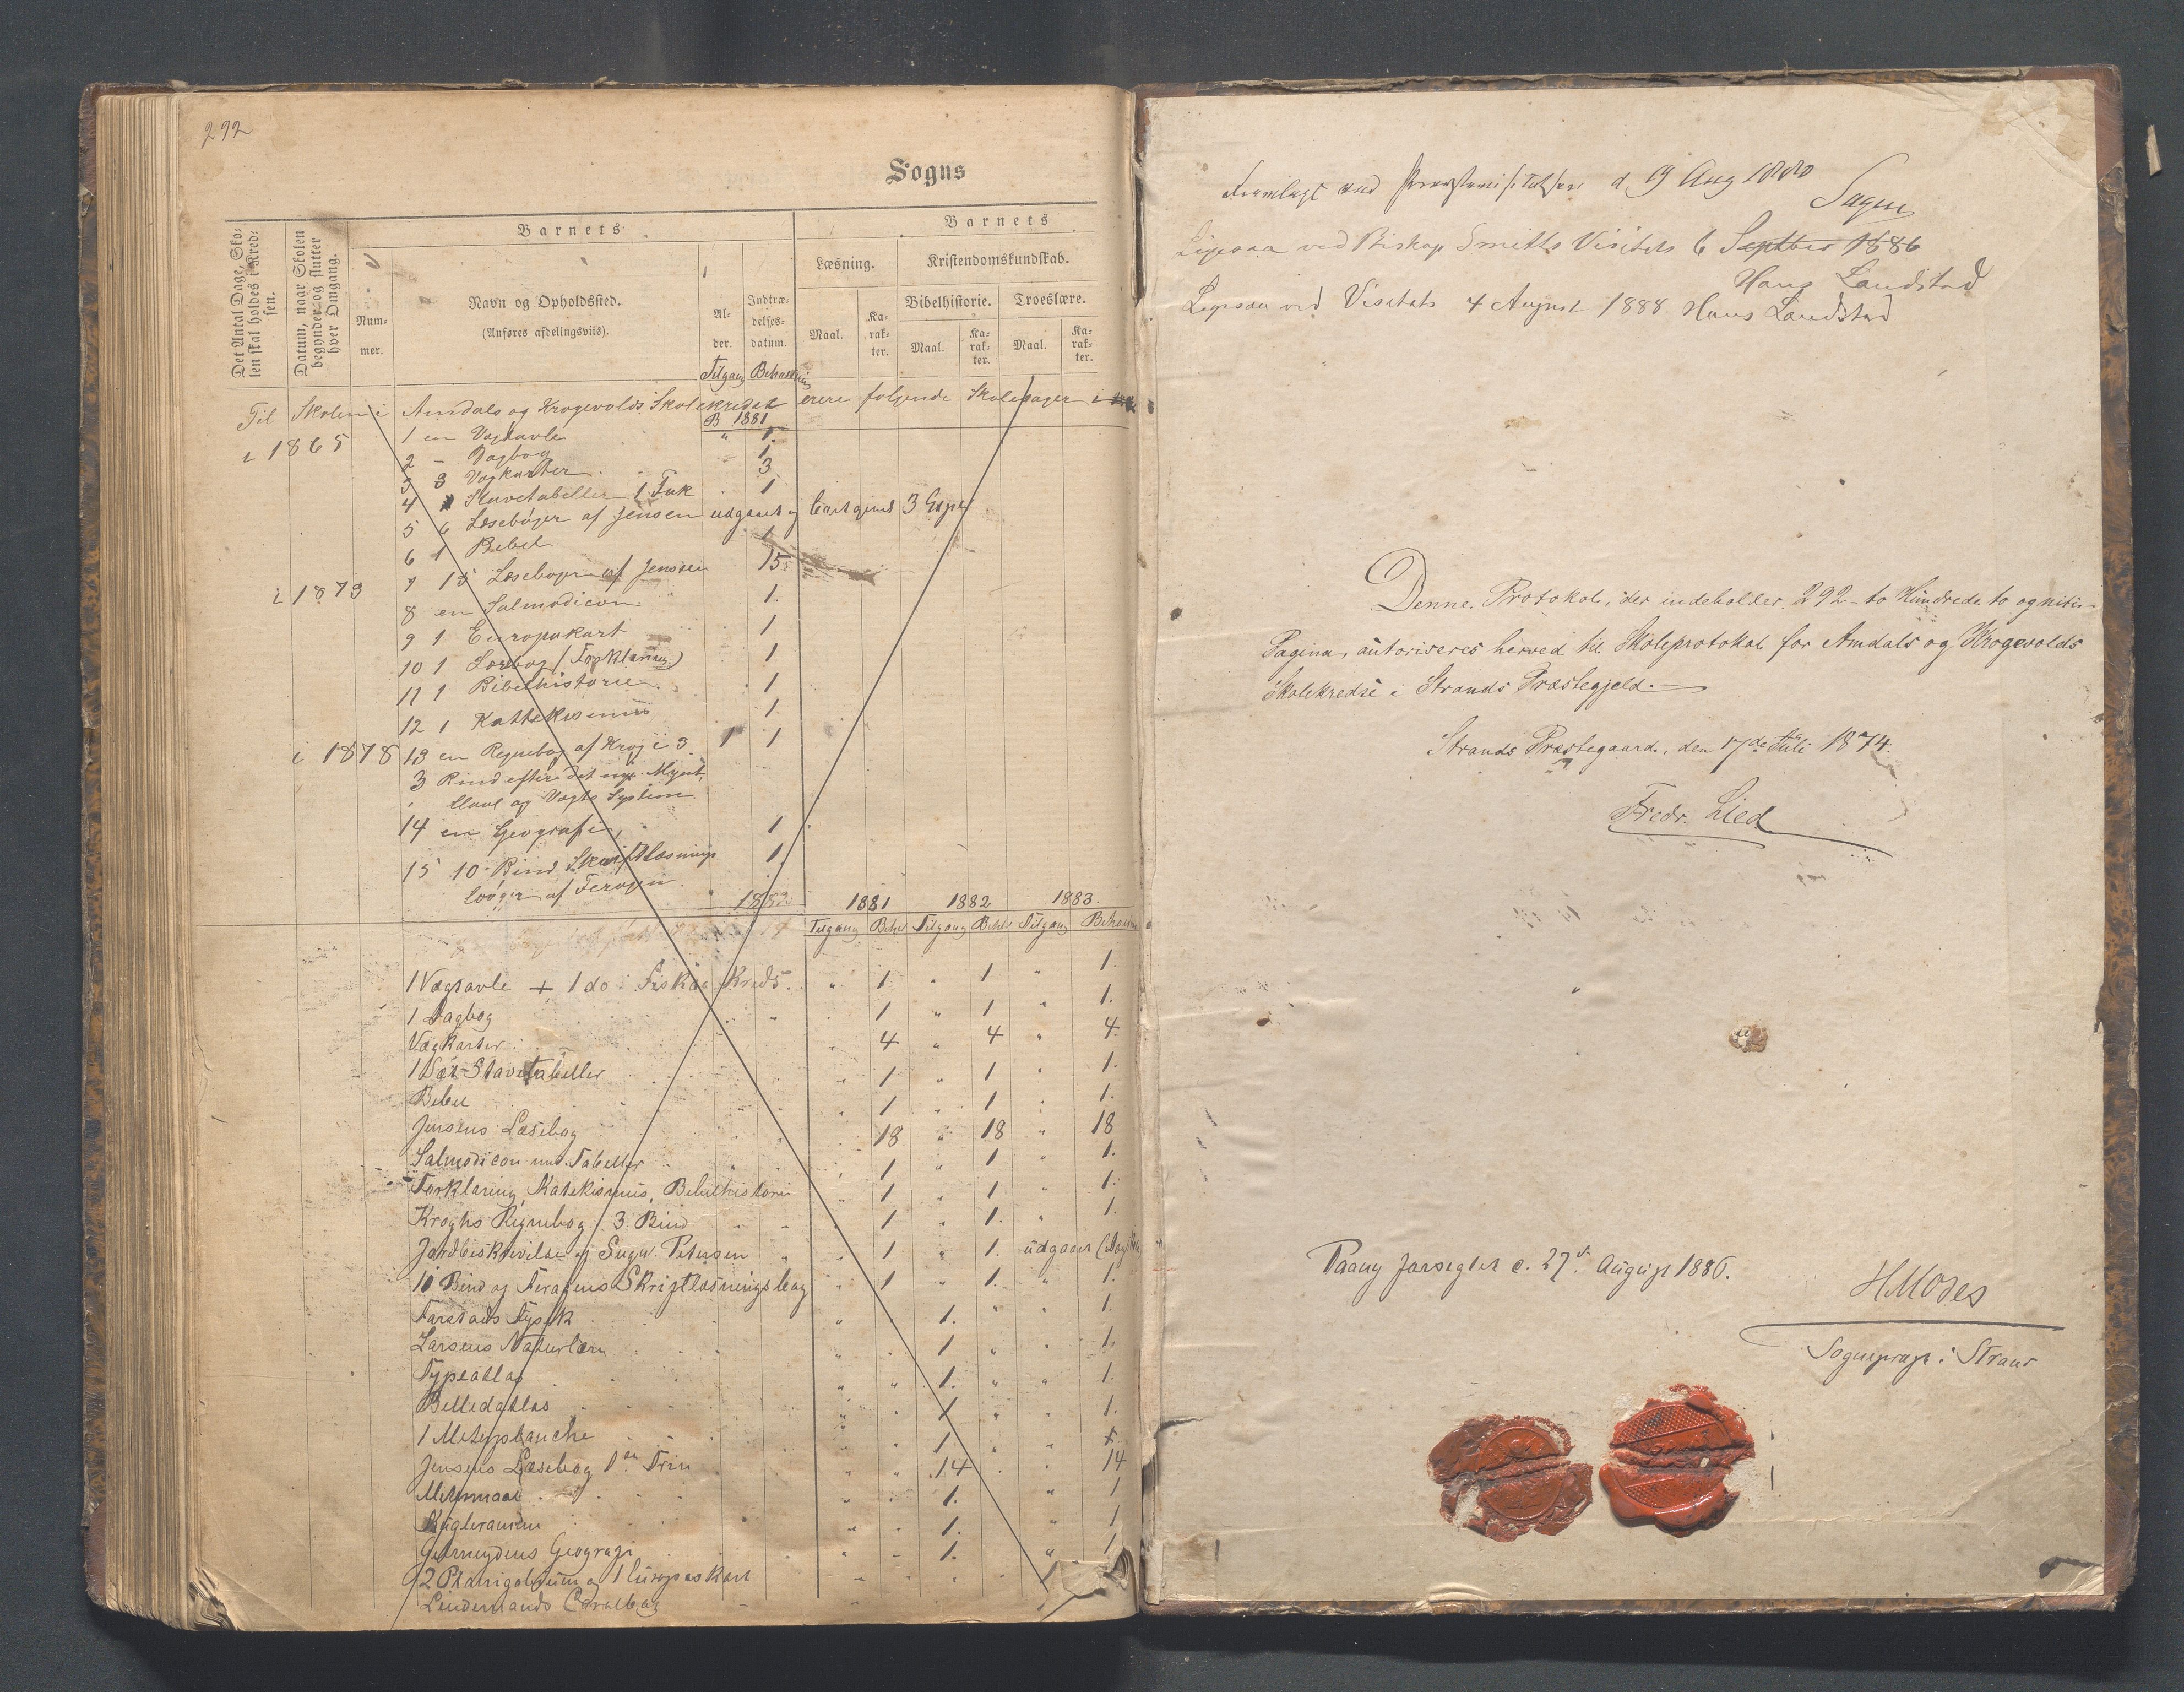 292
Sogns
Det Antal Dage, Sko-
len skal holdes i Kred-
sen.
Datum, naar Skolen
begynder og slutter
hver Omgang.
Barnets
Num-
mer.
Navn og Opholdssted.
(Anføres afdelingsviis).
Al-
der.
Indtræ-
delses-
datum.
Barnets
Læsning.
Kristendomskundskab.
Bibelhistorie.
Troeslære.
Maal.
Ka-
rak-
ter.
Maal.
Ka-
rak-
ter.
Maal.
Ka-
rak-
ter.
Tilgang Beholdning
Til Skolen i Amdals og Krogevolds Skolekreds erere følgende Skolesager i
B 1881
i 1865 1 en Vægtavle " 1.
2 - Dagbog 1.
3 3 Vægkarter 3
4 Stavetabeller 1
5 6 Læsebøger af Jensen udgaaet 3 Expl
6 1 Bibel 1
7 15 Læsebøger af Jensen 15
i 1873
8 en Salmodicon 1.
9 1 Europakart 1
10 1 Lærebog (Forklaring) 1
11 1 Bibelhistorie 1
12 1 Kattekismus 1.
i 1878 13 en Regnebog af Krog i 3 1 1
3 Bind efter det nye Mynt,
Maal og Vægts System.
14 en Geografi, 1
15 10 Bind Skriftlæsnings 1
bøger af Ferogen
1882 1881 1882 1883.
Tilgang Behol Tilgang Behol Tilgang Behold
1 Vægtavle + 1 do Fiskaa Kreds. " 1 " 1 " 1.
1 Dagbog 1 " 1 " 1.
Vægkarter 4 " 4 " 4.
1 Sæt Stavetabeller " 1 " 1 " 1.
Bibel 1 " 1 1.
Jensens Læsebog 18 " 18 " 18
Salmodicon med Tabeller 1 " 1 1.
Forklaring, Katekismus, Bibelhistorie 1 1 1.
Kroghs Regnebog 3 Bind 1 " 1. " 1.
Jordbeskrivelse af Sugw. Petersen 1 " 1. udgaaet
10 Bind af Ferogens Skriftlæsningsbog 1 " 1. " 1.
Farstads Fysik " 1. 1.
Larsens Naturlære " 1 " 1.
Typeatlas " " 1. " " 1.
Billedatlas " 1 " 1.
1 Meterplanche " 1
Jensens Læsebog 1ste Trin " " 14 14
Metermaal " 1. " 1
Kugleramme " 1. " 1
Geelmuydens Geografi " 1. " 1
2 Planiglobium og 1 Europas Kart
Lindemands Coralbog
Fremlagt ved Provstevisitatsen d 19 Aug 1880
Sagen
Ligesaa ved Biskop Smitts Visitats 6 Septber 1886
Hans Landstad
Ligesaa ved Visitats 4 August 1888 Hans Landstad
Denne Protokol, der indeholder 292 - to Hundrede to og niti -
Pagina, autoriseres herved til Skoleprotokol for Amdals og Krogevolds
Skolekredse i Strands Præstegjeld. —
Strands Præstegaard, den 17de Juli 1874.
Fredr. Lied
Paany forseglet d. 27d August 1886.
H Moses
Sognepræst i Strand